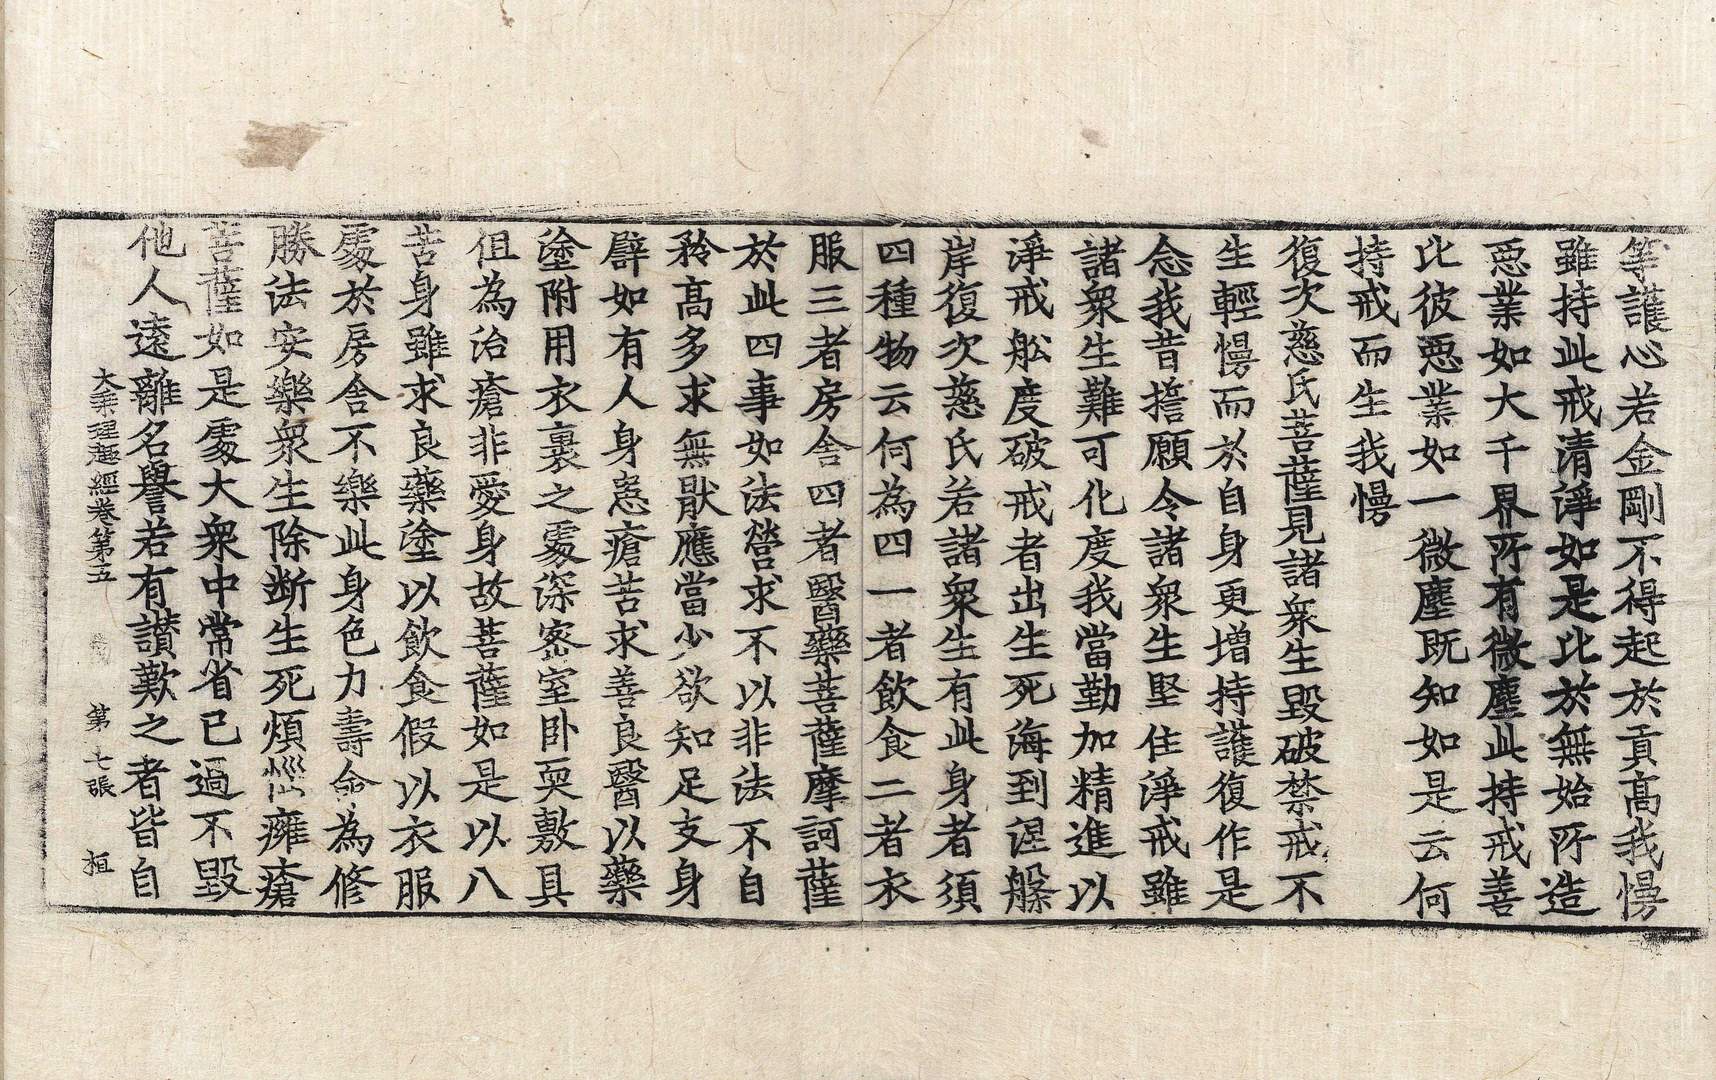 等護心若金剛不得起於貢高我慢
雖持此戒清淨如是比於無始所造
惡業如大千界所有微塵此持戒善
比彼惡業如一微塵既知如是云何
持戒而生我慢
復次慈氏菩薩見諸衆生毀破禁戒不
生輕慢而於自身更增持護復作是
念我昔擔願令諸衆生堅住淨戒雖
諸衆生難可化度我當勤加精進以
淨戒舩度破戒者出生死海到涅槃
岸復次慈氏若諸衆生有此身者須
四種物云何為四一者飲食二者衣
服三者房舍四者醫藥菩薩摩訶薩
於此四事如法營求不以非法不自
矜高多求無猒應當少欲知足支身
譬如有人身患瘡苦求善良醫以藥
塗附用衣裹之處深密室卧耎敷具
但為治瘡非愛身故菩薩如是以八
苦身雖求良藥塗以飲食假以衣服
處於房舍不樂此身色力壽命為修
勝法安樂衆生除断生死煩惱癰瘡
菩薩如是處大衆中常省已過不毀
他人遠離名譽若有讃歎之者皆自
大乘理趣經卷第五 第七張 桓